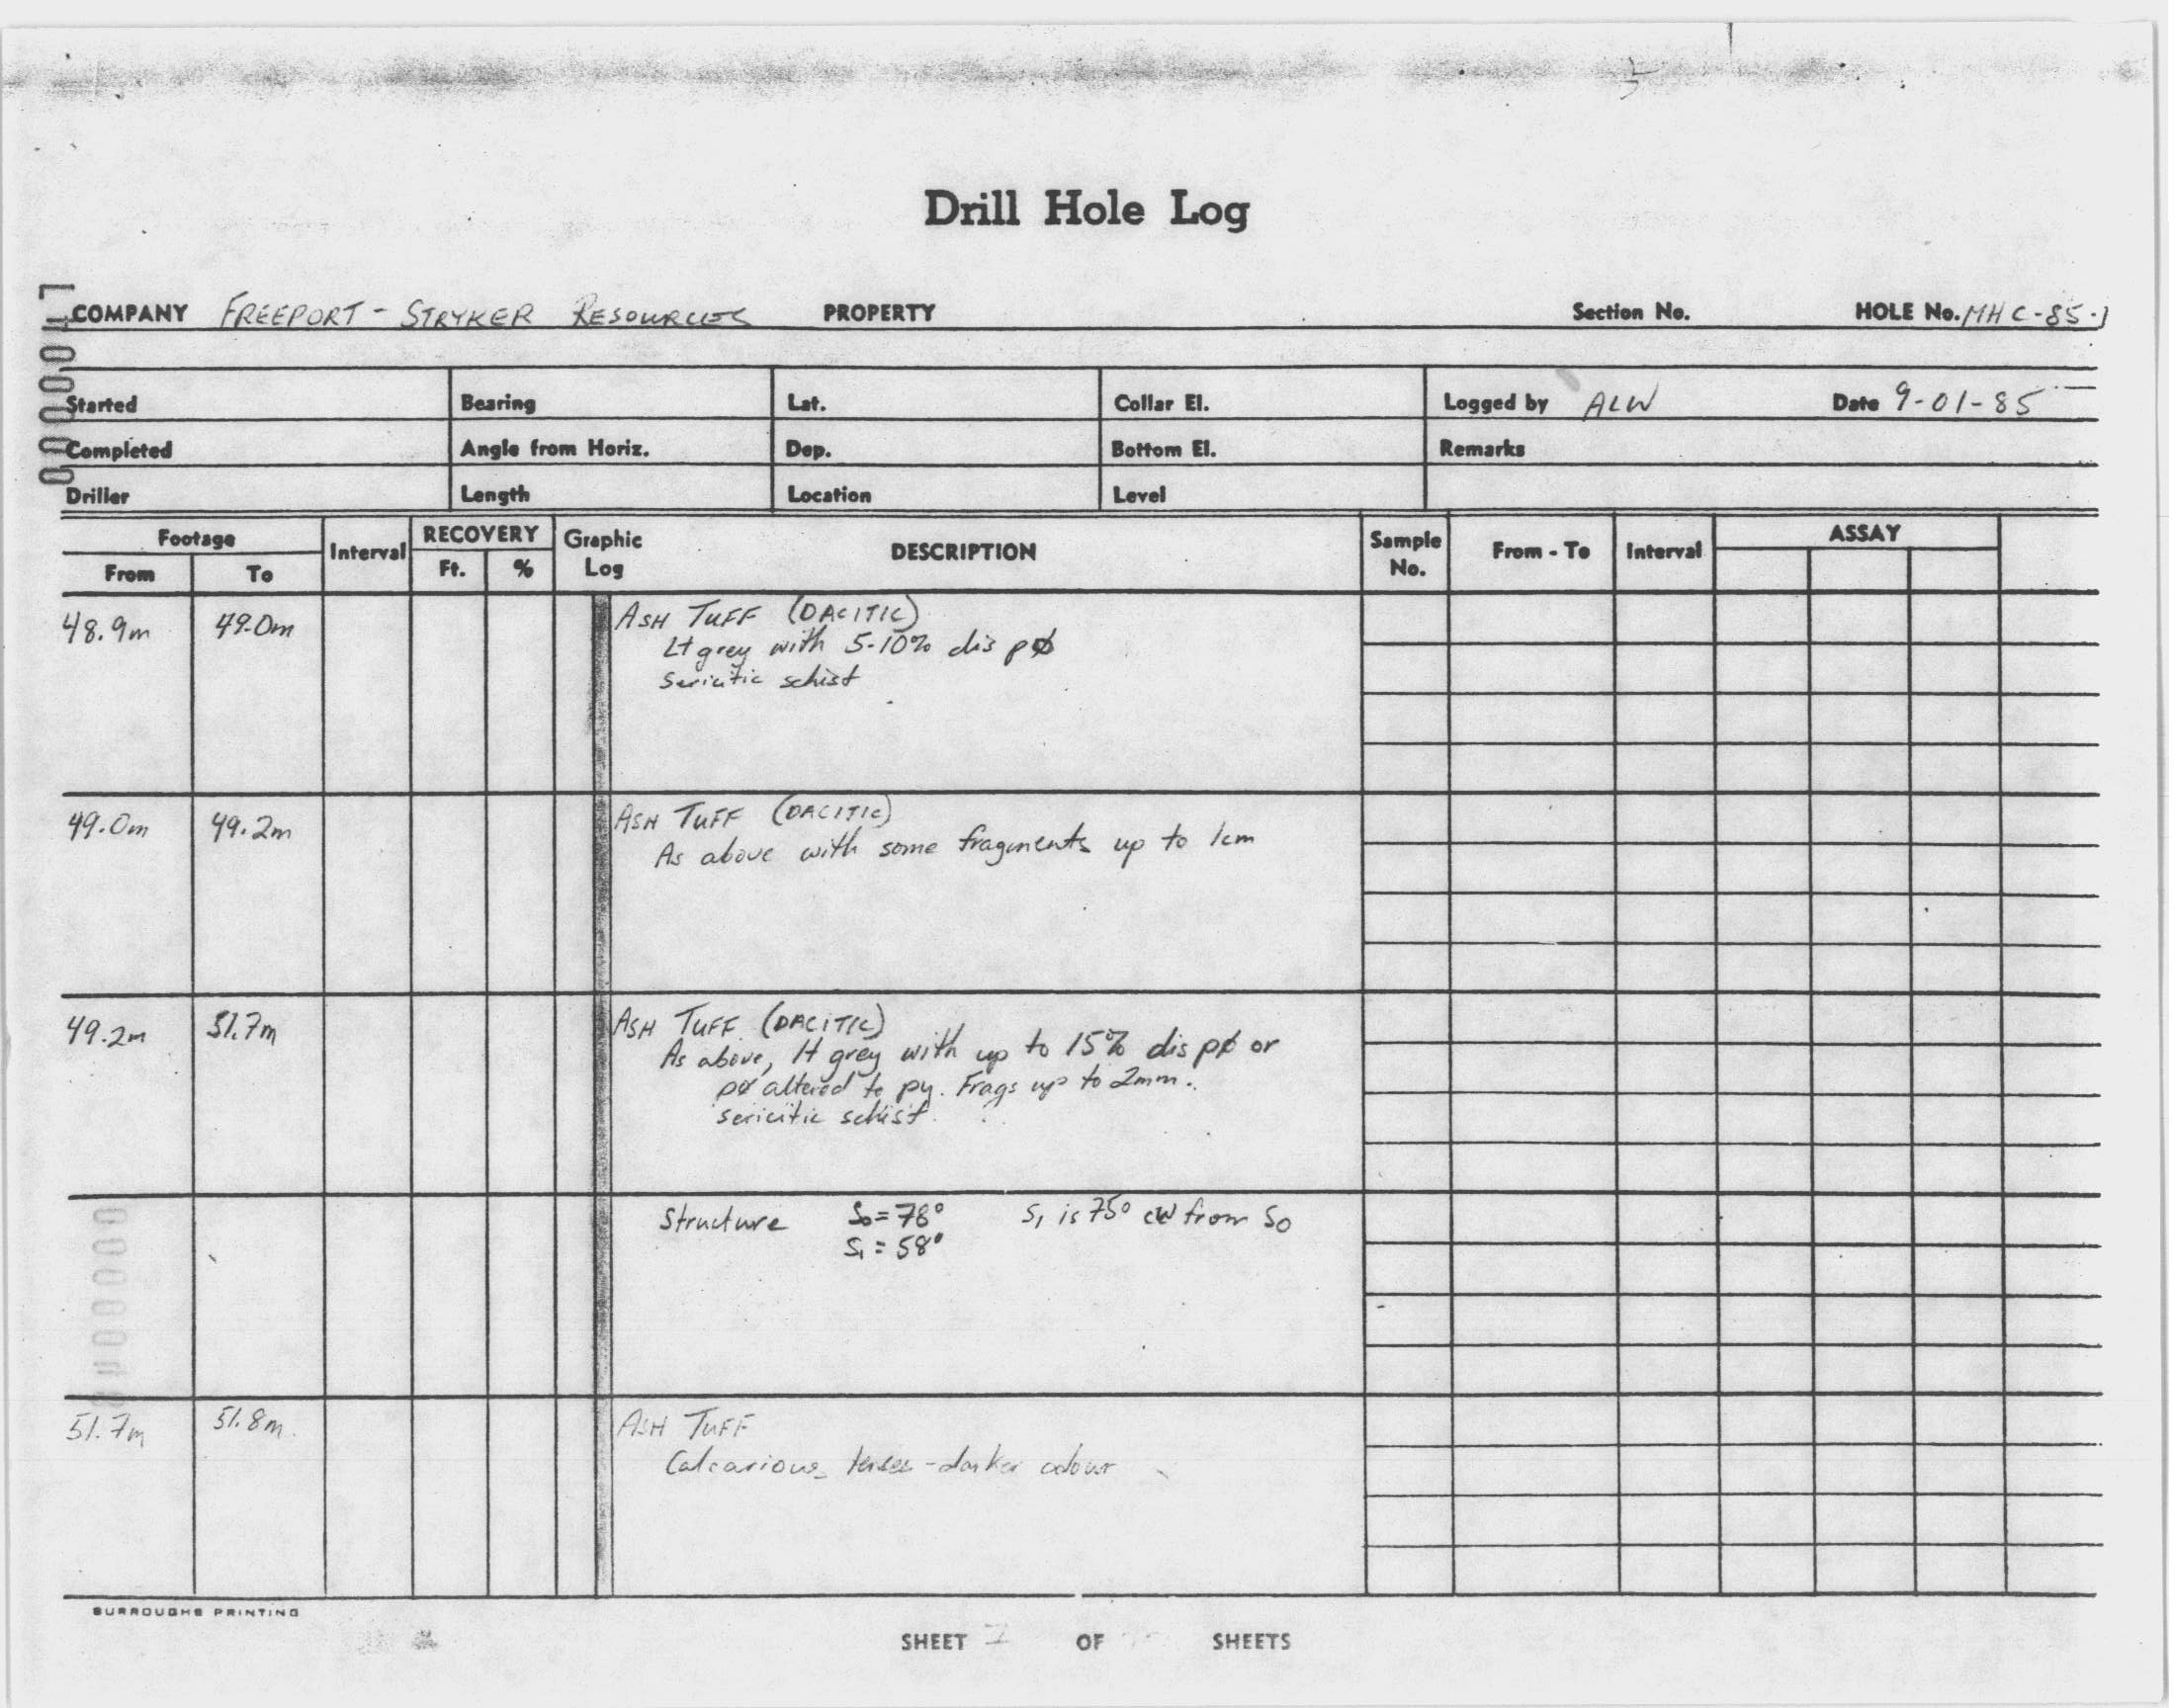 Drill Hole Log
COMPANY FREEPORT - STRYKER RESOURCES PROPERTY Section No. HOLE No. MHC-85-1
Started Bearing Lat. Collar El. Logged by ALW Date 9-01-85
Completed Angle from Horiz. Dep. Bottom El. Remarks
Driller Length Location Level
Footage Interval RECOVERY Graphic Log DESCRIPTION Sample No. From - To Interval ASSAY
From To Ft. %
48.9m 49.0m ASH TUFF (DACITIC)
Lt grey with 5-10% dis pø
Sericitic schist
49.0m 49.2m ASH TUFF (DACITIC)
As above with some fragments up to 1cm
49.2m 51.7m ASH TUFF (DACITIC)
As above, lt grey with up to 15% dis pø or
pø altered to py. Frags up to 2mm.
sericitic schist.
Structure So = 78° S1 is 75° cw from So
S1 = 58°
51.7m 51.8m ASH TUFF
Calcarious lenses - darker colour
BURROUGHS PRINTING
SHEET OF SHEETS